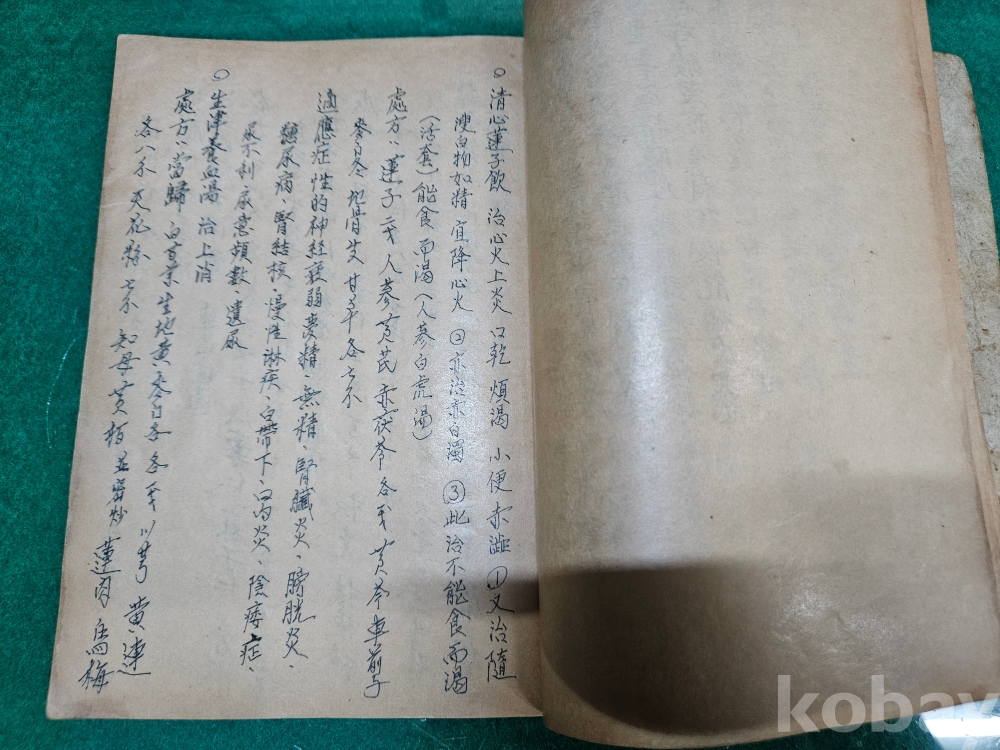 ○ 清心蓮子飮 治心火上炎 口乾 煩渴 小便赤澁 ① 又治隨
溲白物如精 宜降心火 ② 亦治赤白濁 ③ 此治不能食而渴
(活套) 能食而渴 (人蔘白虎湯)
處方、 蓮子 二戔 人蔘 黃芪 赤茯苓 各戔 黃芩 車前子
麥門冬 地骨皮 甘草 各七分
適應症 性的神經衰弱 夢精、無精、腎臟炎、膀胱炎、
糖尿病、腎結核、慢性淋疾、白帶下、口內炎、陰痿症、
尿不利、尿意頻數、遺尿
○ 生津養血湯 治上消
處方、當歸 白芍藥 生地黃、麥門冬 各戔 川芎 黃連
各八分 天花粉 七分 知母 黃栢 並蜜炒 蓮肉 烏梅
kobay